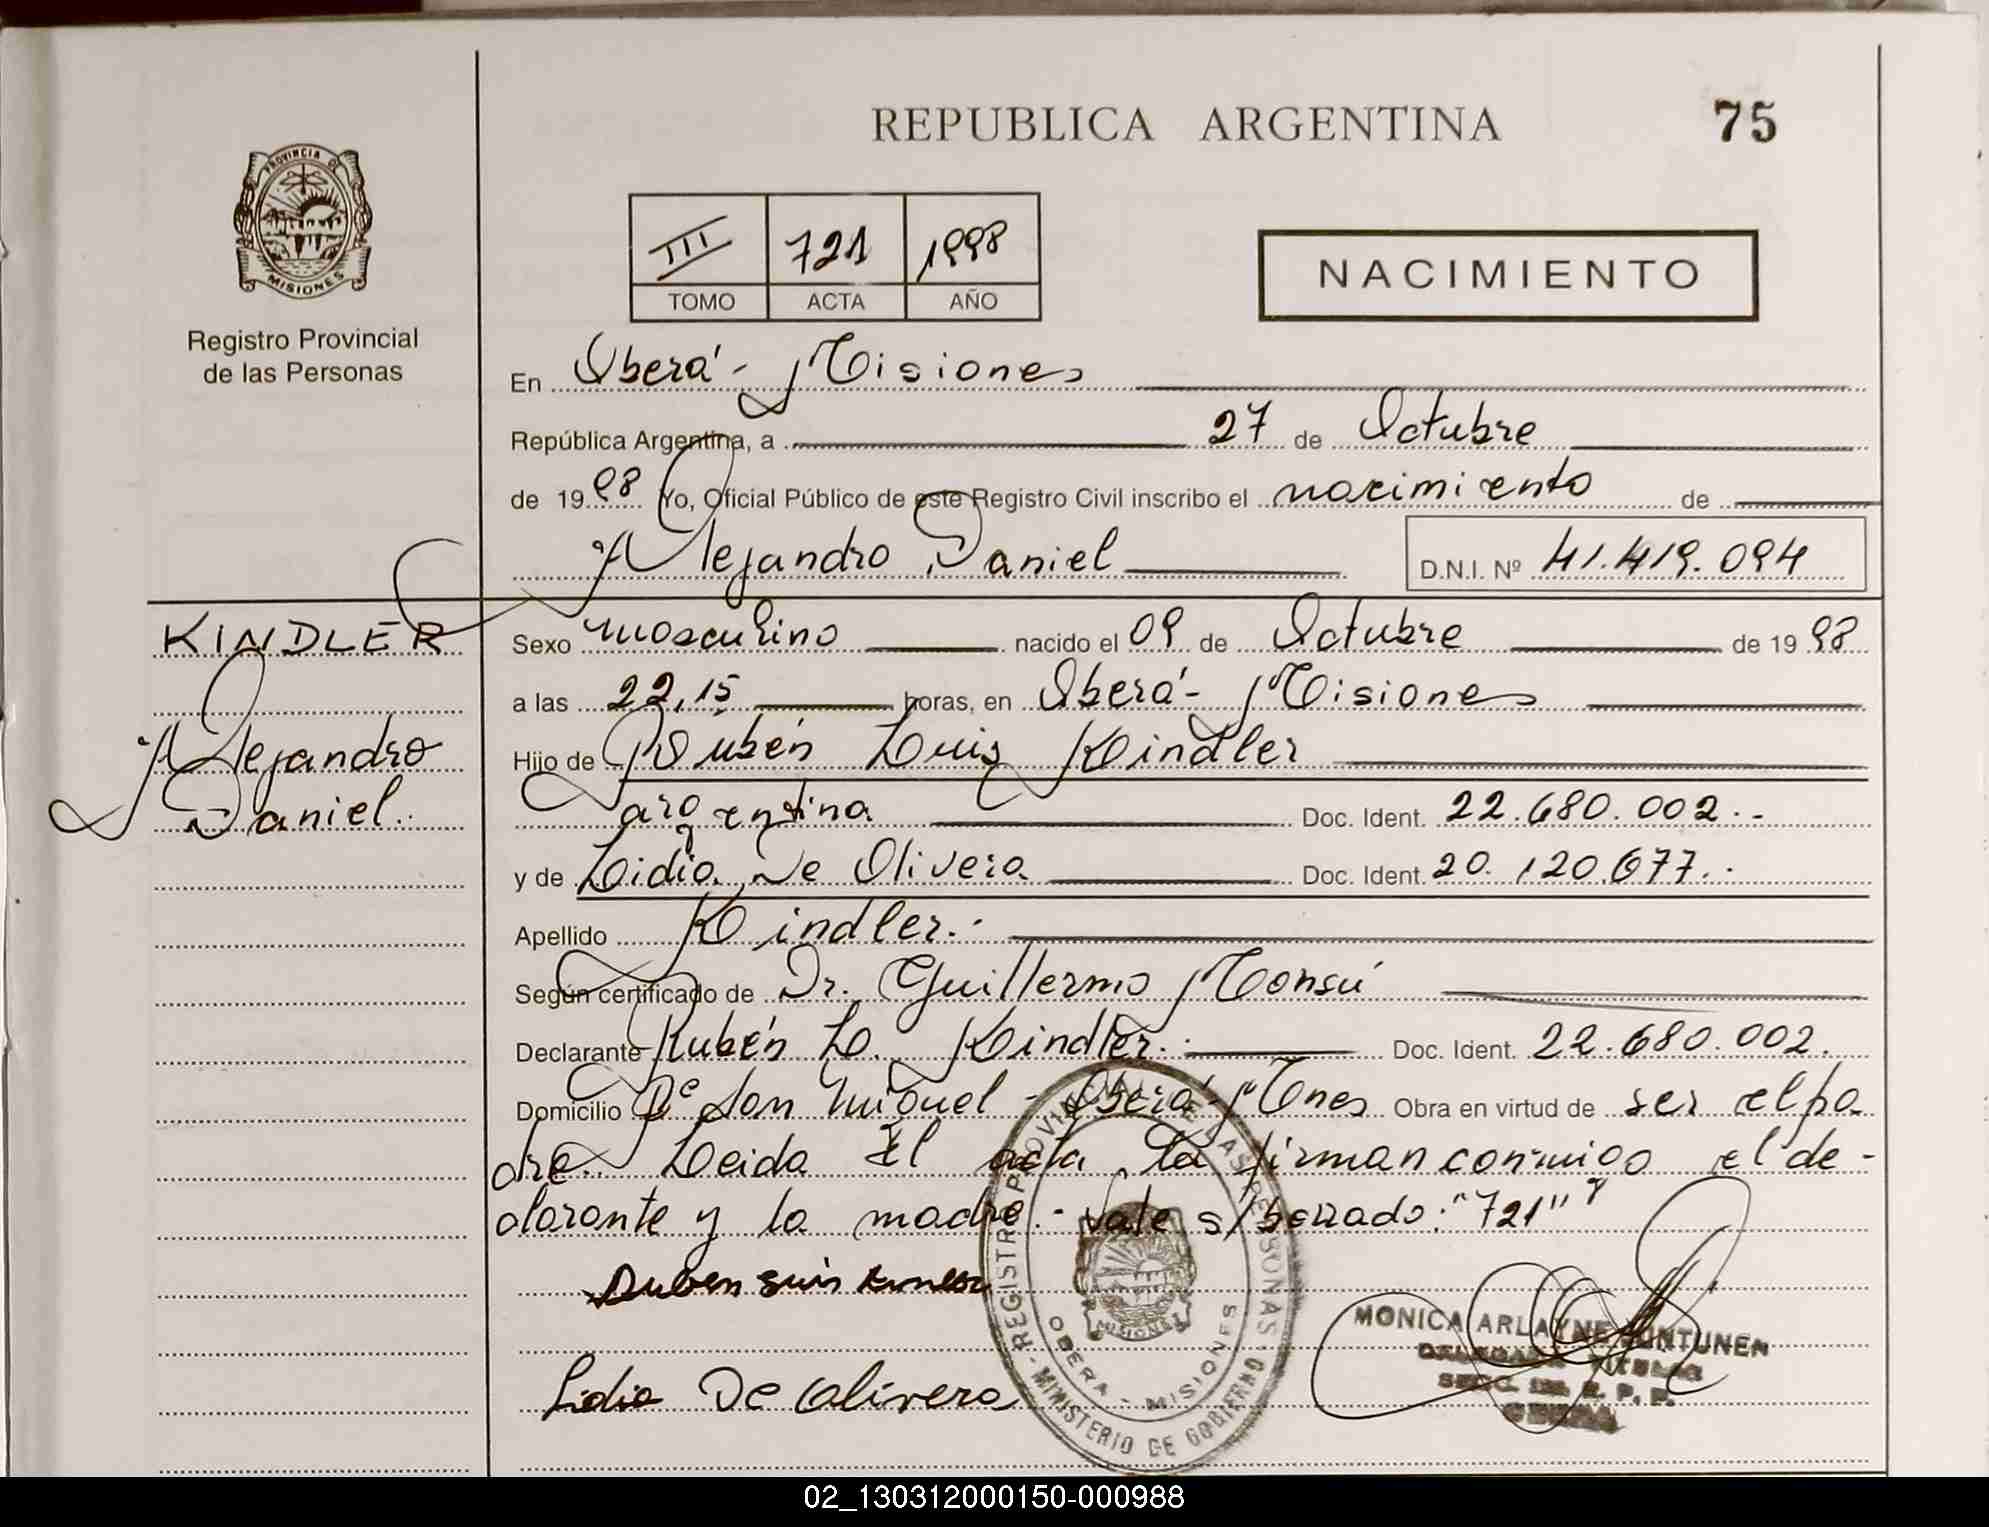 REPUBLICA ARGENTINA
75
PROVINCIA DE
MISIONES
Registro Provincial
de las Personas
III 721 1998
TOMO ACTA AÑO
NACIMIENTO
En Oberá - Misiones
República Argentina, a 27 de Octubre
de 1998 Yo, Oficial Público de este Registro Civil inscribo el nacimiento de
Alejandro Daniel D.N.I. Nº 41.419.094
KINDLER
Alejandro
Daniel.
Sexo masculino nacido el 09 de Octubre de 1998
a las 22,15 horas, en Oberá - Misiones
Hijo de Rubén Luis Kindler
argentina Doc. Ident. 22.680.002.-
y de Lidia De Olivera Doc. Ident. 20.120.677.-
Apellido Kindler.-
Según certificado de Dr. Guillermo Monsú
Declarante Rubén L. Kindler.- Doc. Ident. 22.680.002.
Domicilio Pje San Miguel - Oberá - Mnes Obra en virtud de ser el pa
dre. Leida El acta, la firman conmigo el de-
clarante y la madre.- Vale s/borrado: "721"
Ruben Luis Kindler
Lidia De Olivera
REGISTRO PROVINCIAL DE LAS PERSONAS - MINISTERIO DE GOBIERNO
MISIONES
OBERA - MISIONES
MONICA ARLAYNE
DELEGADA TITULAR
R. P. P.
OBERA
02_130312000150-000988